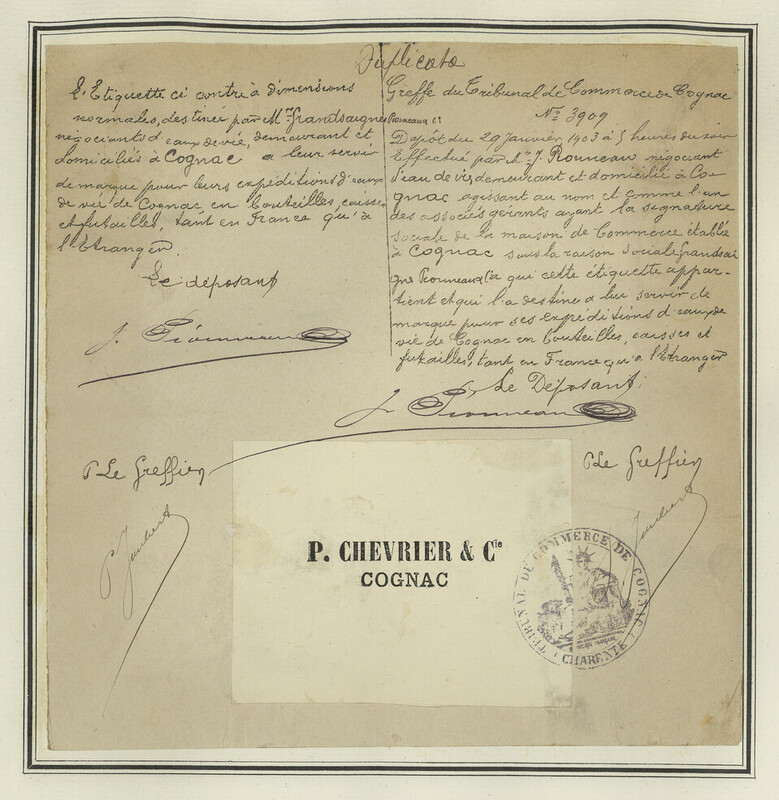 Duplicata
L'Etiquette ci contre à dimensions
normales, destinée par Mrs Grandsaigne Pionneau Cie
négociants d'eaux de vie, demeurant et
domiciliés à Cognac a leur servir
de marque pour leurs expéditions d'eaux
de vie de Cognac en bouteilles, caisses
et futailles, tant en France qu'à
l'Etranger.
Le déposant
J. Pionneau
Greffe du Tribunal de Commerce de Cognac
No 3909
Dépôt du 29 Janvier 1903 à 5 heures du soir
Effectué par Mr J. Pionneau négociant
d'eau de vie, demeurant et domicilié à Co
gnac agissant au nom et comme l'un
des associés gérants ayant la signature
sociale de la maison de Commerce établie
à Cognac sous la raison sociale Grandsai
gne Pionneau & Cie à qui cette étiquette appar-
tient et qui l'a destine à lui servir de
marque pour ses expéditions d'eaux de
vie de Cognac en bouteilles, caisses et
futailles, tant en France qu'à l'Etranger
Le Déposant
J Pionneau
P Le Greffier
P Le Greffier
P. CHEVRIER & Cie
COGNAC
TRIBUNAL DE COMMERCE DE COGNAC
CHARENTE